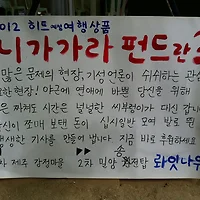 012 히트예감 여행상품
니가가라 펀드란?
많은 문제의 현장, 기성언론이 쉬쉬하는 관심
요한현장! 야근에 연애에 바쁜 당신을 위해
은 까져도 시간은 널널한 씨부렁이가 대신 갑니
당신이 쪼매 보탠 돈이 십시일반 모여 바로 뛴
생생한 기사를 만들어 냅니다. 지금 바로 후원하세요
▶▶
차 제주 강정마을 2차 밀양 송전탑 롸잇나우